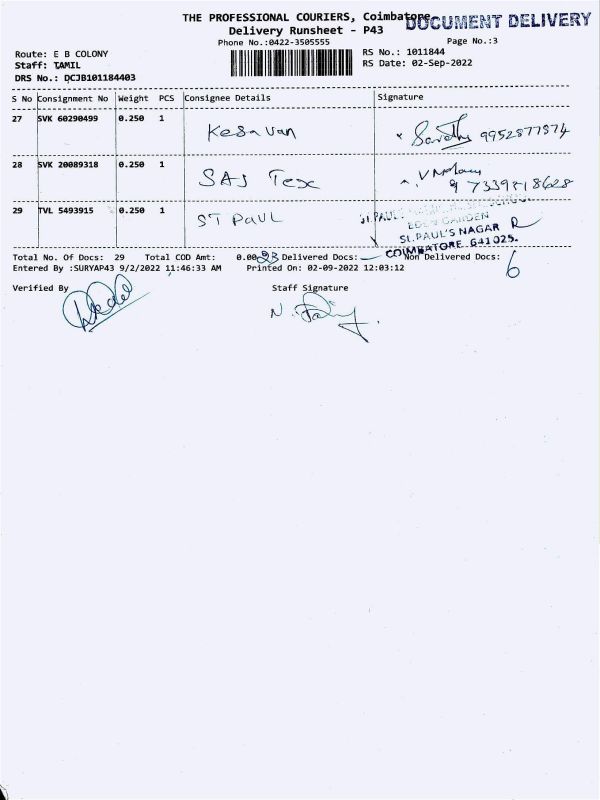 THE PROFESSIONAL COURIERS, Coimbatore
DOCUMENT DELIVERY
Delivery Runsheet - P43
Phone No.:0422-3505555
Page No.:3
Route: E B COLONY
RS No.: 1011844
Staff: TAMIL
RS Date: 02-Sep-2022
DRS No.: DCJB101184403
S No Consignment No Weight PCS Consignee Details Signature
27 SVK 60290499 0.250 1 Kesavan 9952877874
28 SVK 20089318 0.250 1 SAS Tex
29 TVL 5493915 0.250 1 ST PAUL
ST.PAUL'S
EDEN GARDEN
ST.PAUL'S NAGAR
COIMBATORE 641025.
Total No. Of Docs: 29 Total COD Amt: 0.00 23 Delivered Docs: Non Delivered Docs: 6
Entered By :SURYAP43 9/2/2022 11:46:33 AM Printed On: 02-09-2022 12:03:12
Verified By Staff Signature